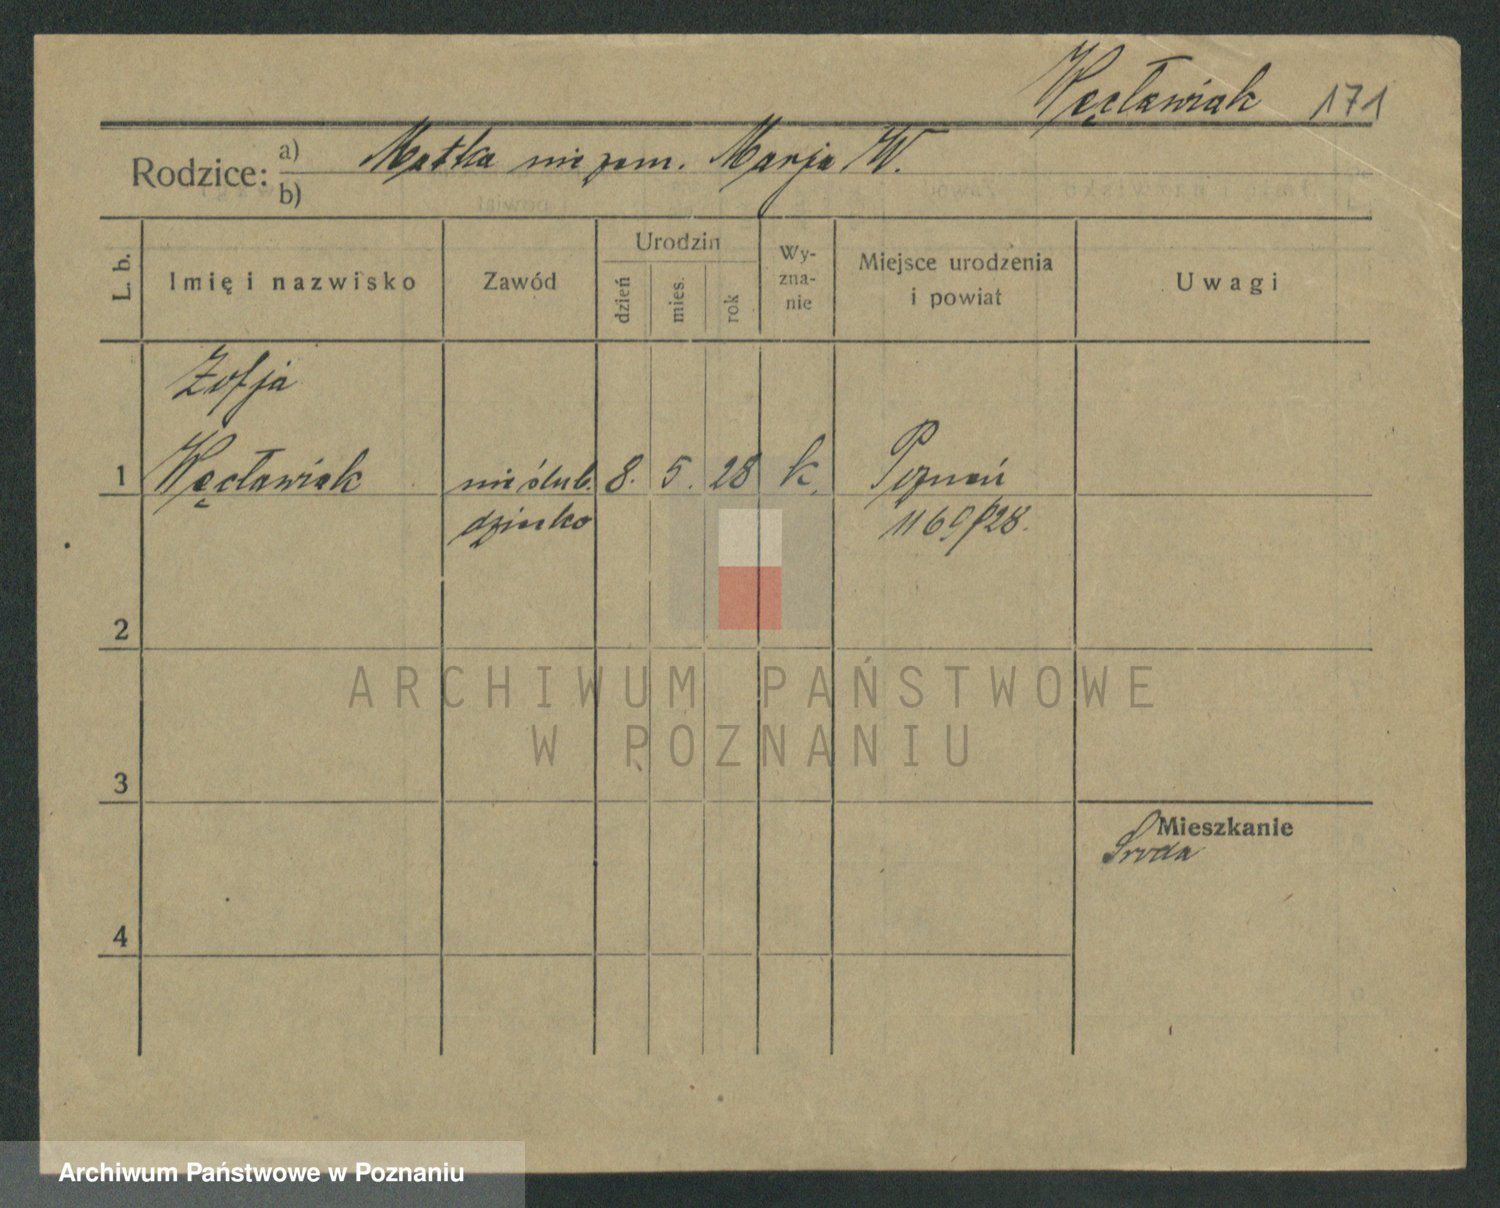 Węcławiak 171
Rodzice: a) Matka niezam. Marja W.
b)
L. b.
Imię i nazwisko
Zawód
Urodzin
dzień
mies.
rok
Wy-
zna-
nie
Miejsce urodzenia
i powiat
Uwagi
Zofja
1 Węcławiak nieślub. 8. 5. 28 k. Poznań
dziecko 1169/28.
2
ARCHIWUM PAŃSTWOWE
W POZNANIU
3
Mieszkanie
Środa
4
Archiwum Państwowe w Poznaniu